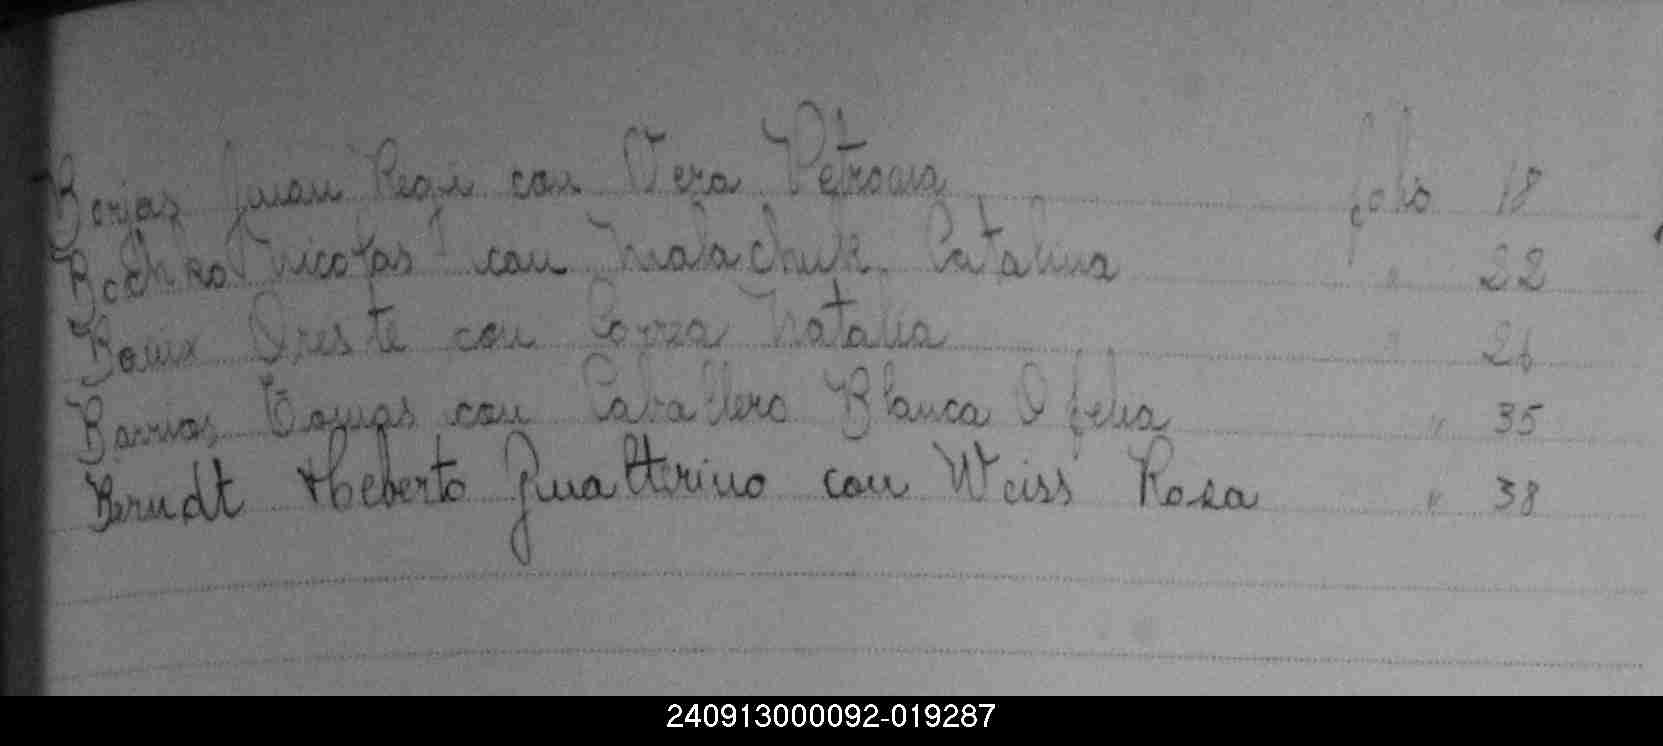 Borjas Juan Regi con Vera Petrona folio 18
Bochko Nicolas con Malachuk Catalina " 22
Bouix Oreste con Cozza Natalia " 26
Barrios Tomas con Caballero Blanca Ofelia " 35
Berndt Heberto Gualterino con Weiss Rosa " 38
240913000092-019287